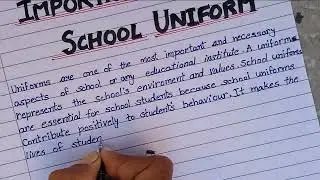 IMPORTAN
SCHOOL UNIFORM
Uniforms are one of the most important and necessary
aspects of school or any educational institute. A uniform
represents the school's enviroment and values. School uniforms
are essential for school students because school uniforms
Contribute positively to student's behaviour. It makes the
lives of studen